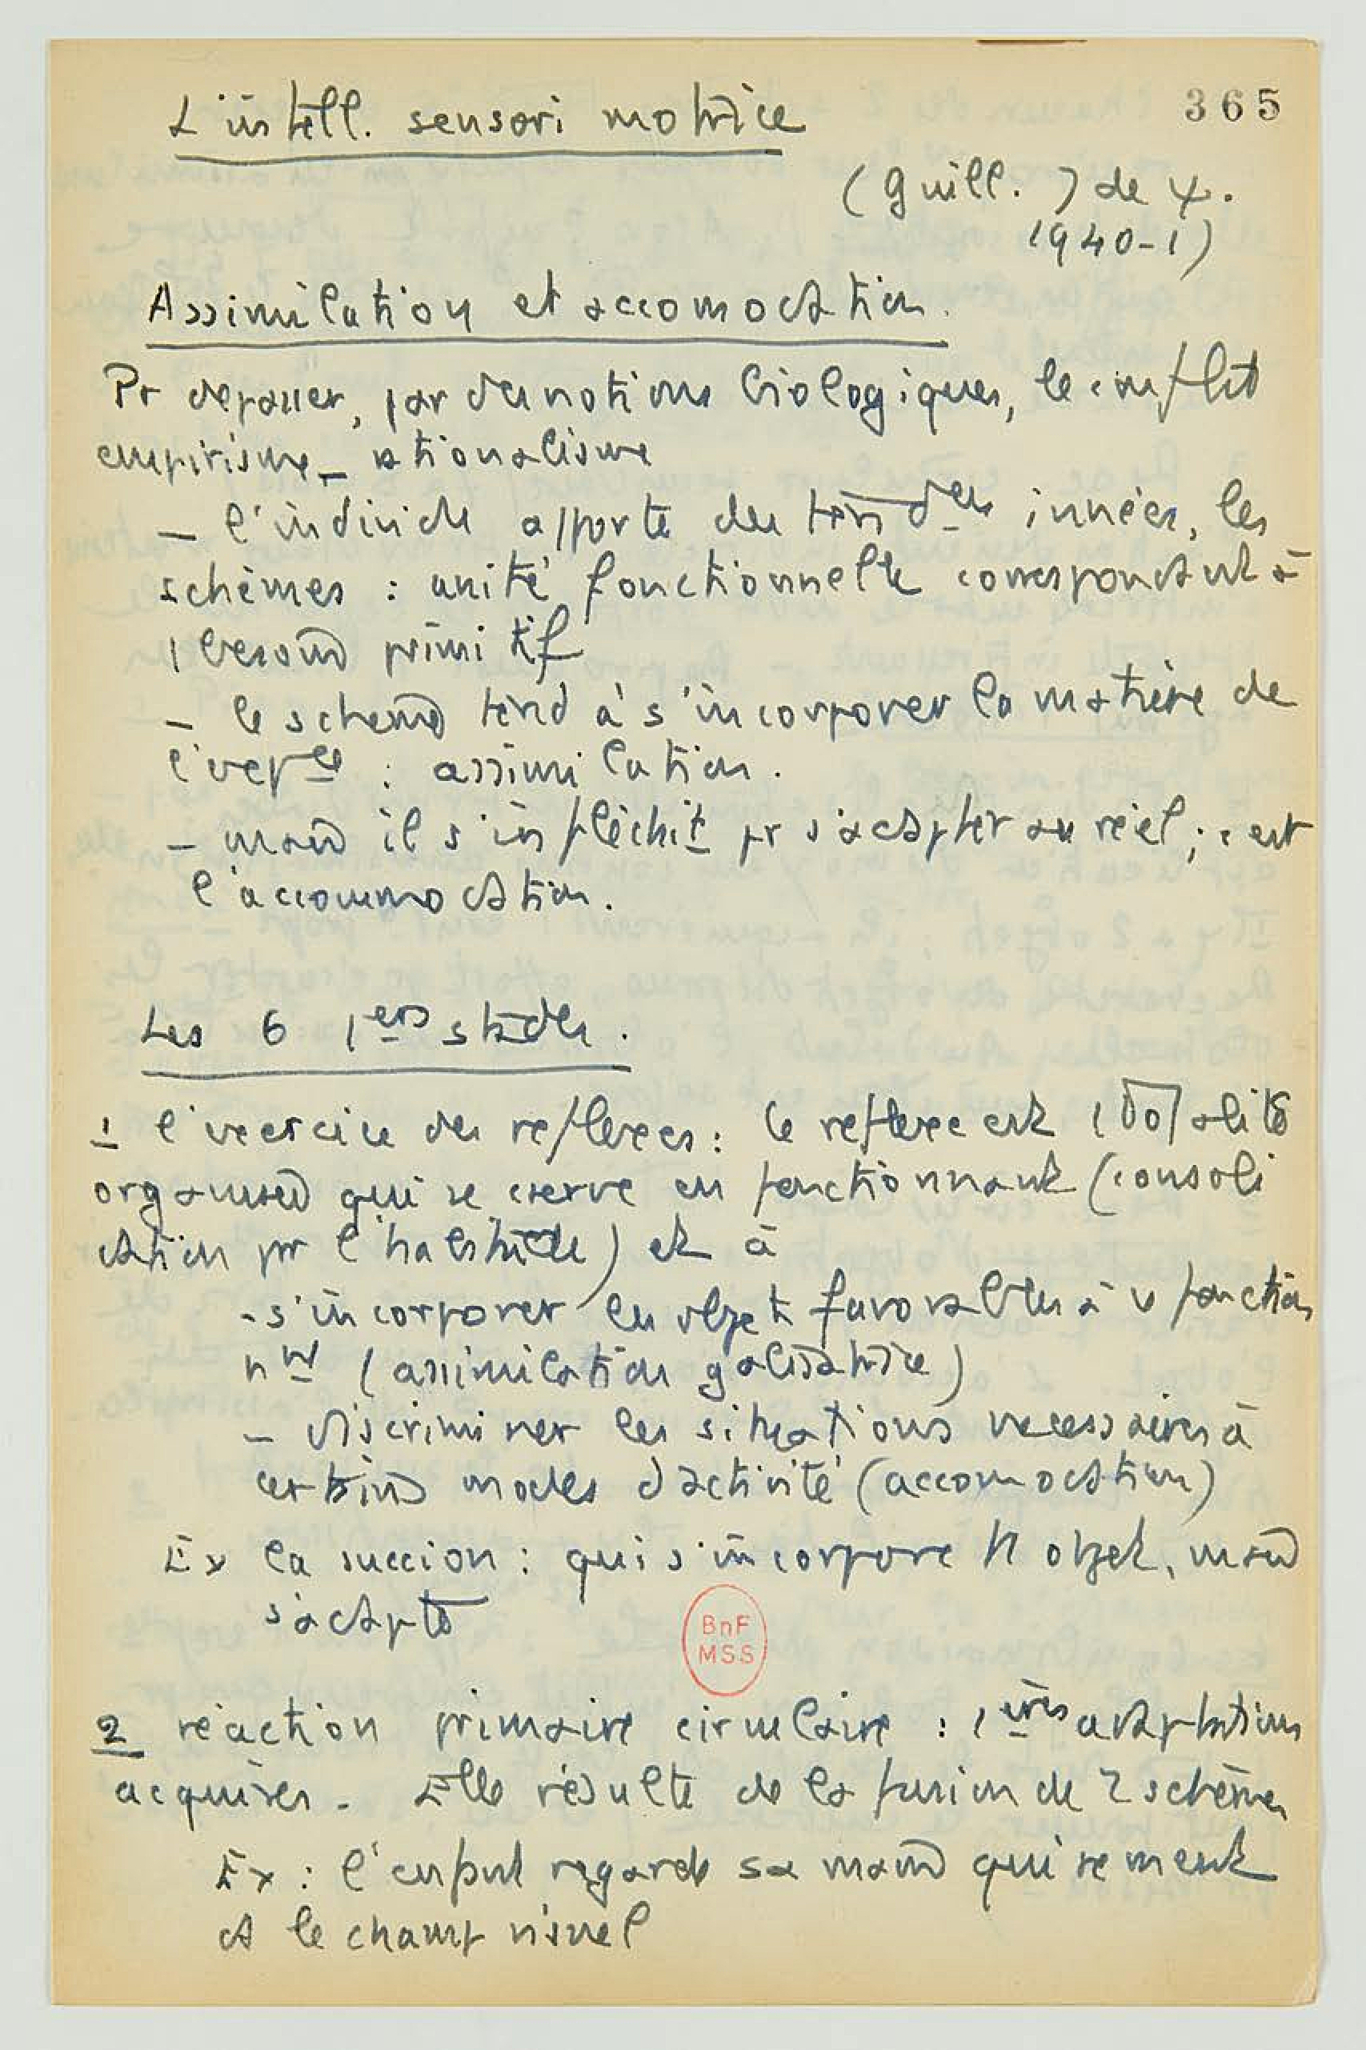 365
L'intell. sensori motrice
(Guill. J de ψ.
1940-1)
Assimilation et accomodation.
Pr depasser, par des notions biologiques, le conflit
empirisme - rationalisme
- l'individu apporte des tend ces innées, les
schèmes : unité fonctionnelle correspondant à
1 besoin primitif
- le schema tend à s'incorporer la matière de
l'exp ce : assimilation.
- mais il s'infléchit pr s'adapter au réel ; c'est
l'accommodation.
Les 6 1ers stades.
1 l'exercice des reflexes : le reflexe est 1 totalité
organisée qui se cserve en fonctionnant (consoli
dation par l'habitude) et à
- s'incorporer les objets favorables à fonction
nnt (assimilation galisatrice)
- discriminer les situations necessaires à
certains modes d'activité (accomodation)
Ex la succion : qui s'incorpore objet, mais
s'adapte
BnF
MSS
2 réaction primaire circulaire : 1ères adaptations
acquises. Elle résulte de la fusion de 2 schèmes
Ex : l'enfant regarde sa main qui se meut
ds le champ visuel